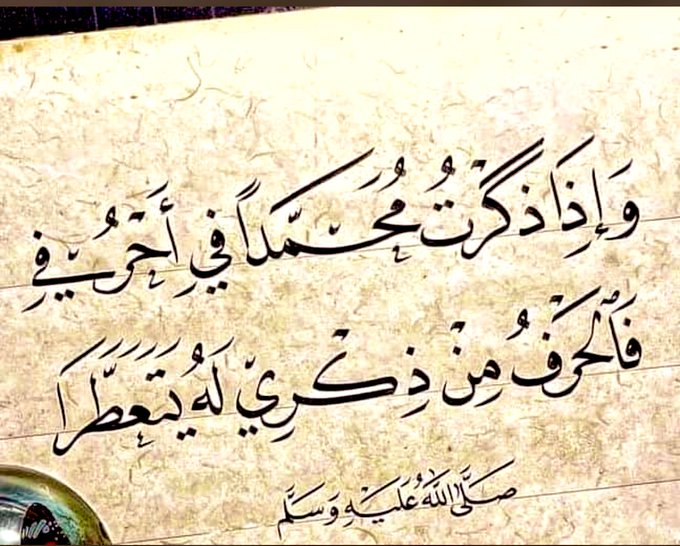 وَإِذَا ذَكَرْتُ مُحَمَّدًا فِي أَحْرُفِي
فَالْحَرْفُ مِنْ ذِكْرِي لَهُ يَتَعَطَّرَا
صَلَّى اللَّهُ عَلَيْهِ وَسَلَّم